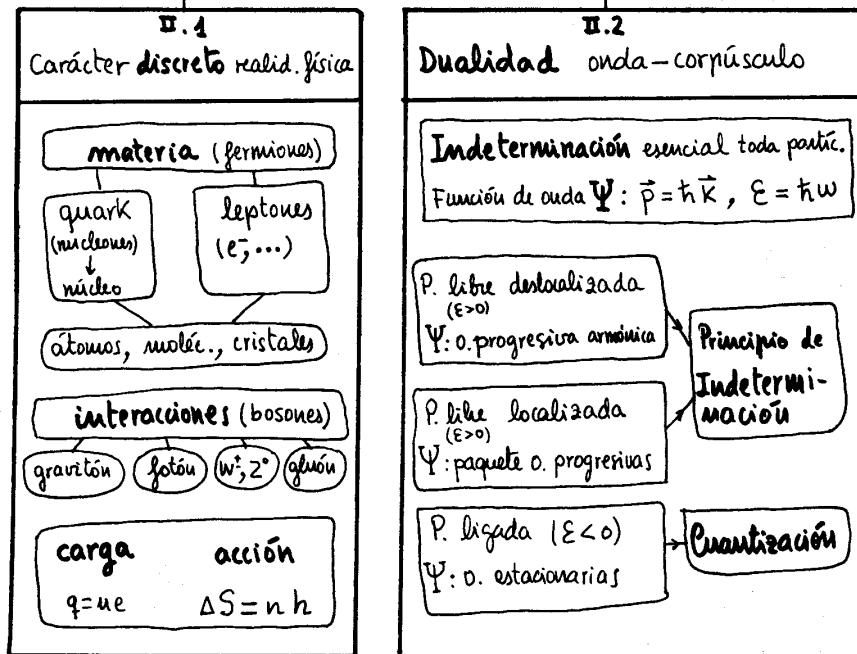 II.1
Carácter discreto realid. física
materia (fermiones)
quark
(nucleones)
↓
núcleo
leptones
(e⁻, ...)
átomos, moléc., cristales
interacciones (bosones)
gravitón
fotón
W±, Z°
gluón
carga
q=ne
acción
ΔS = n h
II.2
Dualidad onda-corpúsculo
Indeterminación esencial toda partíc.
Función de onda Ψ: p⃗ = ħ K⃗, Ɛ = ħω
P. libre deslocalizada
(Ɛ>0)
Ψ: o. progresiva armónica
P. libre localizada
(Ɛ>0)
Ψ: paquete o. progresivas
Principio de
Indetermi-
nación
P. ligada (Ɛ<0)
Ψ: o. estacionarias
Cuantización